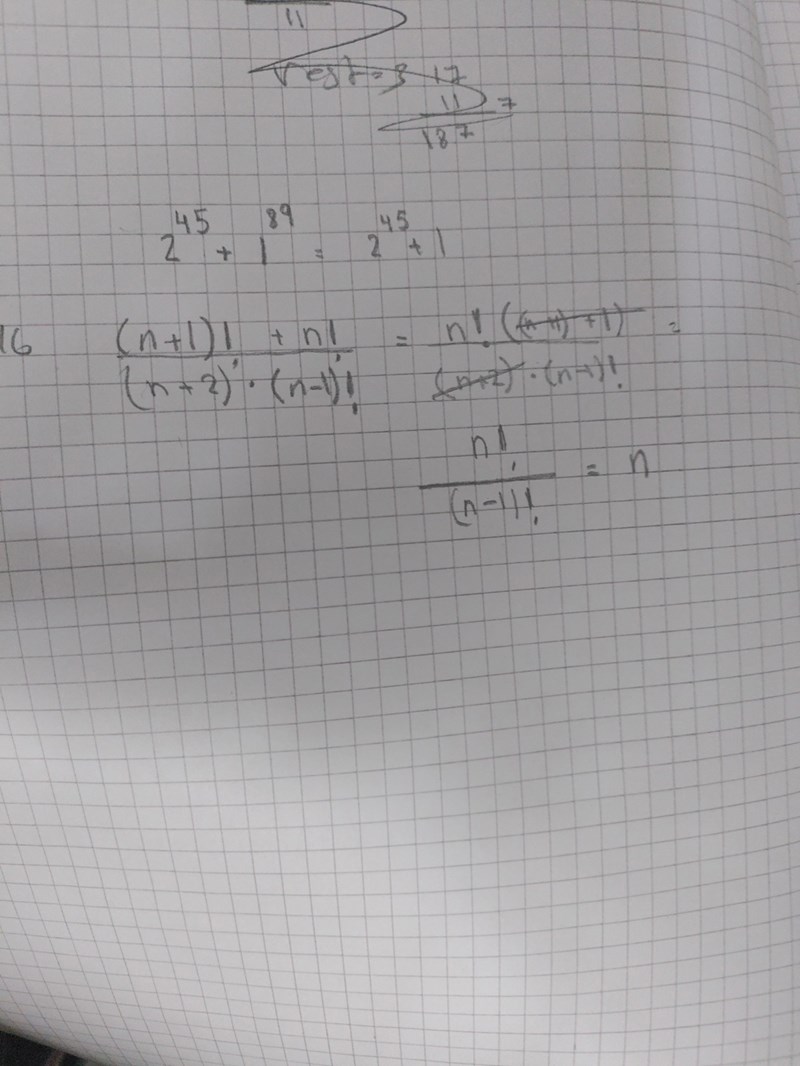 11
rest = 3 17
11 7
187
2^45 + 1^89 = 2^45 + 1
16 (n+1)! + n! / (n+2) · (n-1)! = n! ((n+1) + 1) / (n+2) · (n-1)! =
n! / (n-1)! = n